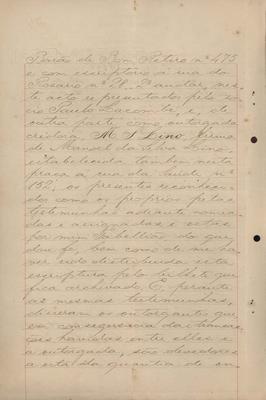 Barão de Bom Retiro nº 475
e com escriptorio á rua do
Rosario nº 28, 2º andar, nes-
te acto representados pelo so-
cio Paulo Lacombe, e, de
outra parte como outorgada
credora, M. S. Lino, firma
de Manoel da Silva Lino,
estabelecida tambem nesta
praça á rua da Saude nº
152, os presentes reconheci-
dos como os proprios pelas
testemunhas adiante nomea-
das e assignadas e estas
por mim Tabellião do que
dou fé, bem como de me ha-
ver sido distribuida esta
escriptura pelo bilhete que
fica archivado. E, perante
as mesmas testemunhas,
disseram os outorgantes que
em consequencia das transac-
ções havidas entre elles e
a outorgada, são devedores
a esta da quantia de